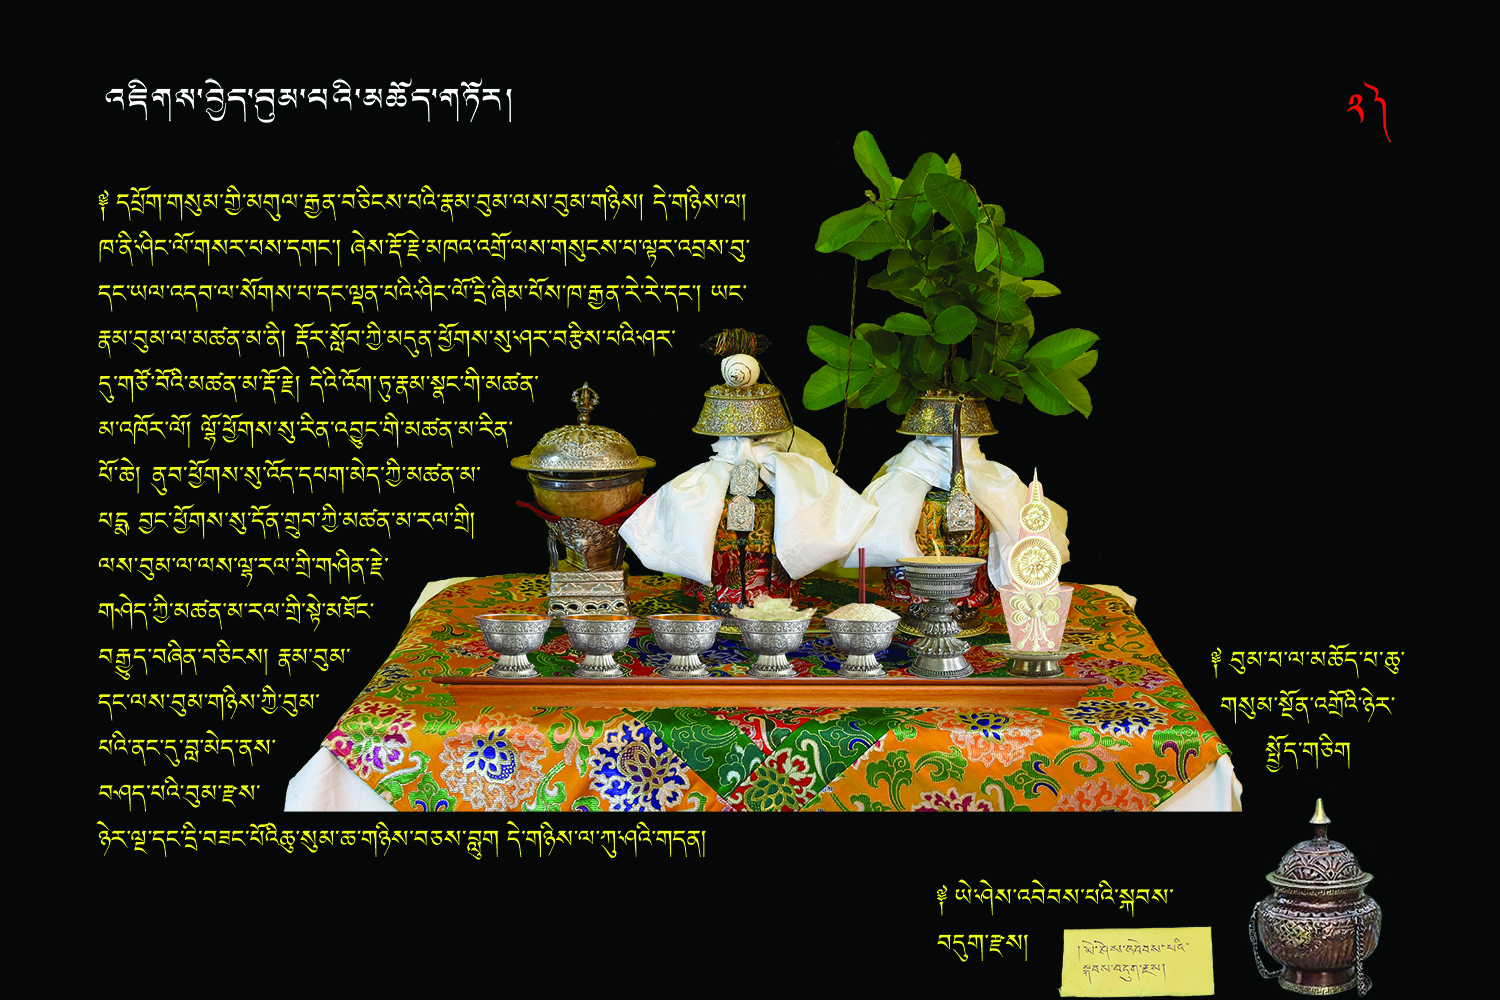 འཇིགས་བྱེད་བུམ་པའི་མཆོད་གཏོར།
༢༡
༈ དཔྲོག་གསུམ་གྱི་མགུལ་རྒྱན་བཅིངས་པའི་རྣམ་བུམ་ལས་བུམ་གཉིས། དེ་གཉིས་ལ།
ཁ་ནི་ཤིང་ལོ་གསར་པས་དགང༌། ཞེས་རྡོ་རྗེ་མཁའ་འགྲོ་ལས་གསུངས་པ་ལྟར་འབྲས་བུ་
དང་ཡལ་འདབ་ལ་སོགས་པ་དང་ལྡན་པའི་ཤིང་ལོ་དྲི་ཞིམ་པོས་ཁ་རྒྱན་རེ་རེ་དང༌། ཡང་
རྣམ་བུམ་ལ་མཚན་མ་ནི། རྡོར་སློབ་ཀྱི་མདུན་ཕྱོགས་སུ་ཤར་བརྩིས་པའི་ཤར་
དུ་གཙོ་བོའི་མཚན་མ་རྡོ་རྗེ། དེའི་འོག་ཏུ་རྣམ་སྣང་གི་མཚན་
མ་འཁོར་ལོ། ལྷོ་ཕྱོགས་སུ་རིན་འབྱུང་གི་མཚན་མ་རིན་
པོ་ཆེ། ནུབ་ཕྱོགས་སུ་འོད་དཔག་མེད་ཀྱི་མཚན་མ་
པདྨ། བྱང་ཕྱོགས་སུ་དོན་གྲུབ་ཀྱི་མཚན་མ་རལ་གྲི།
ལས་བུམ་ལ་ལས་ལྷ་རལ་གྲི་གཤིན་རྗེ་
གཤེད་ཀྱི་མཚན་མ་རལ་གྲི་སྟེ་མཐོང་
བརྒྱུད་བཞིན་བཅིངས། རྣམ་བུམ་
དང་ལས་བུམ་གཉིས་ཀྱི་བུམ་
པའི་ནང་དུ་བླ་མེད་ནས་
བཤད་པའི་བུམ་རྫས་
ཉེར་ལྔ་དང་དྲི་བཟང་པོའི་ཆུ་སུམ་ཆ་གཉིས་བཅས་བླུག དེ་གཉིས་ལ་ཀུ་ཤའི་གདན།
༈ བུམ་པ་ལ་མཆོད་པ་ཆུ་
གསུམ་སྔོན་འགྲོའི་ཉེར་
སྤྱོད་གཅིག
༈ ཡེ་ཤེས་འབེབས་པའི་སྐབས་
བདུག་རྫས།
།ཡེ་ཤེས་འབེབས་པའི་
སྐབས་བདུག་རྫས།